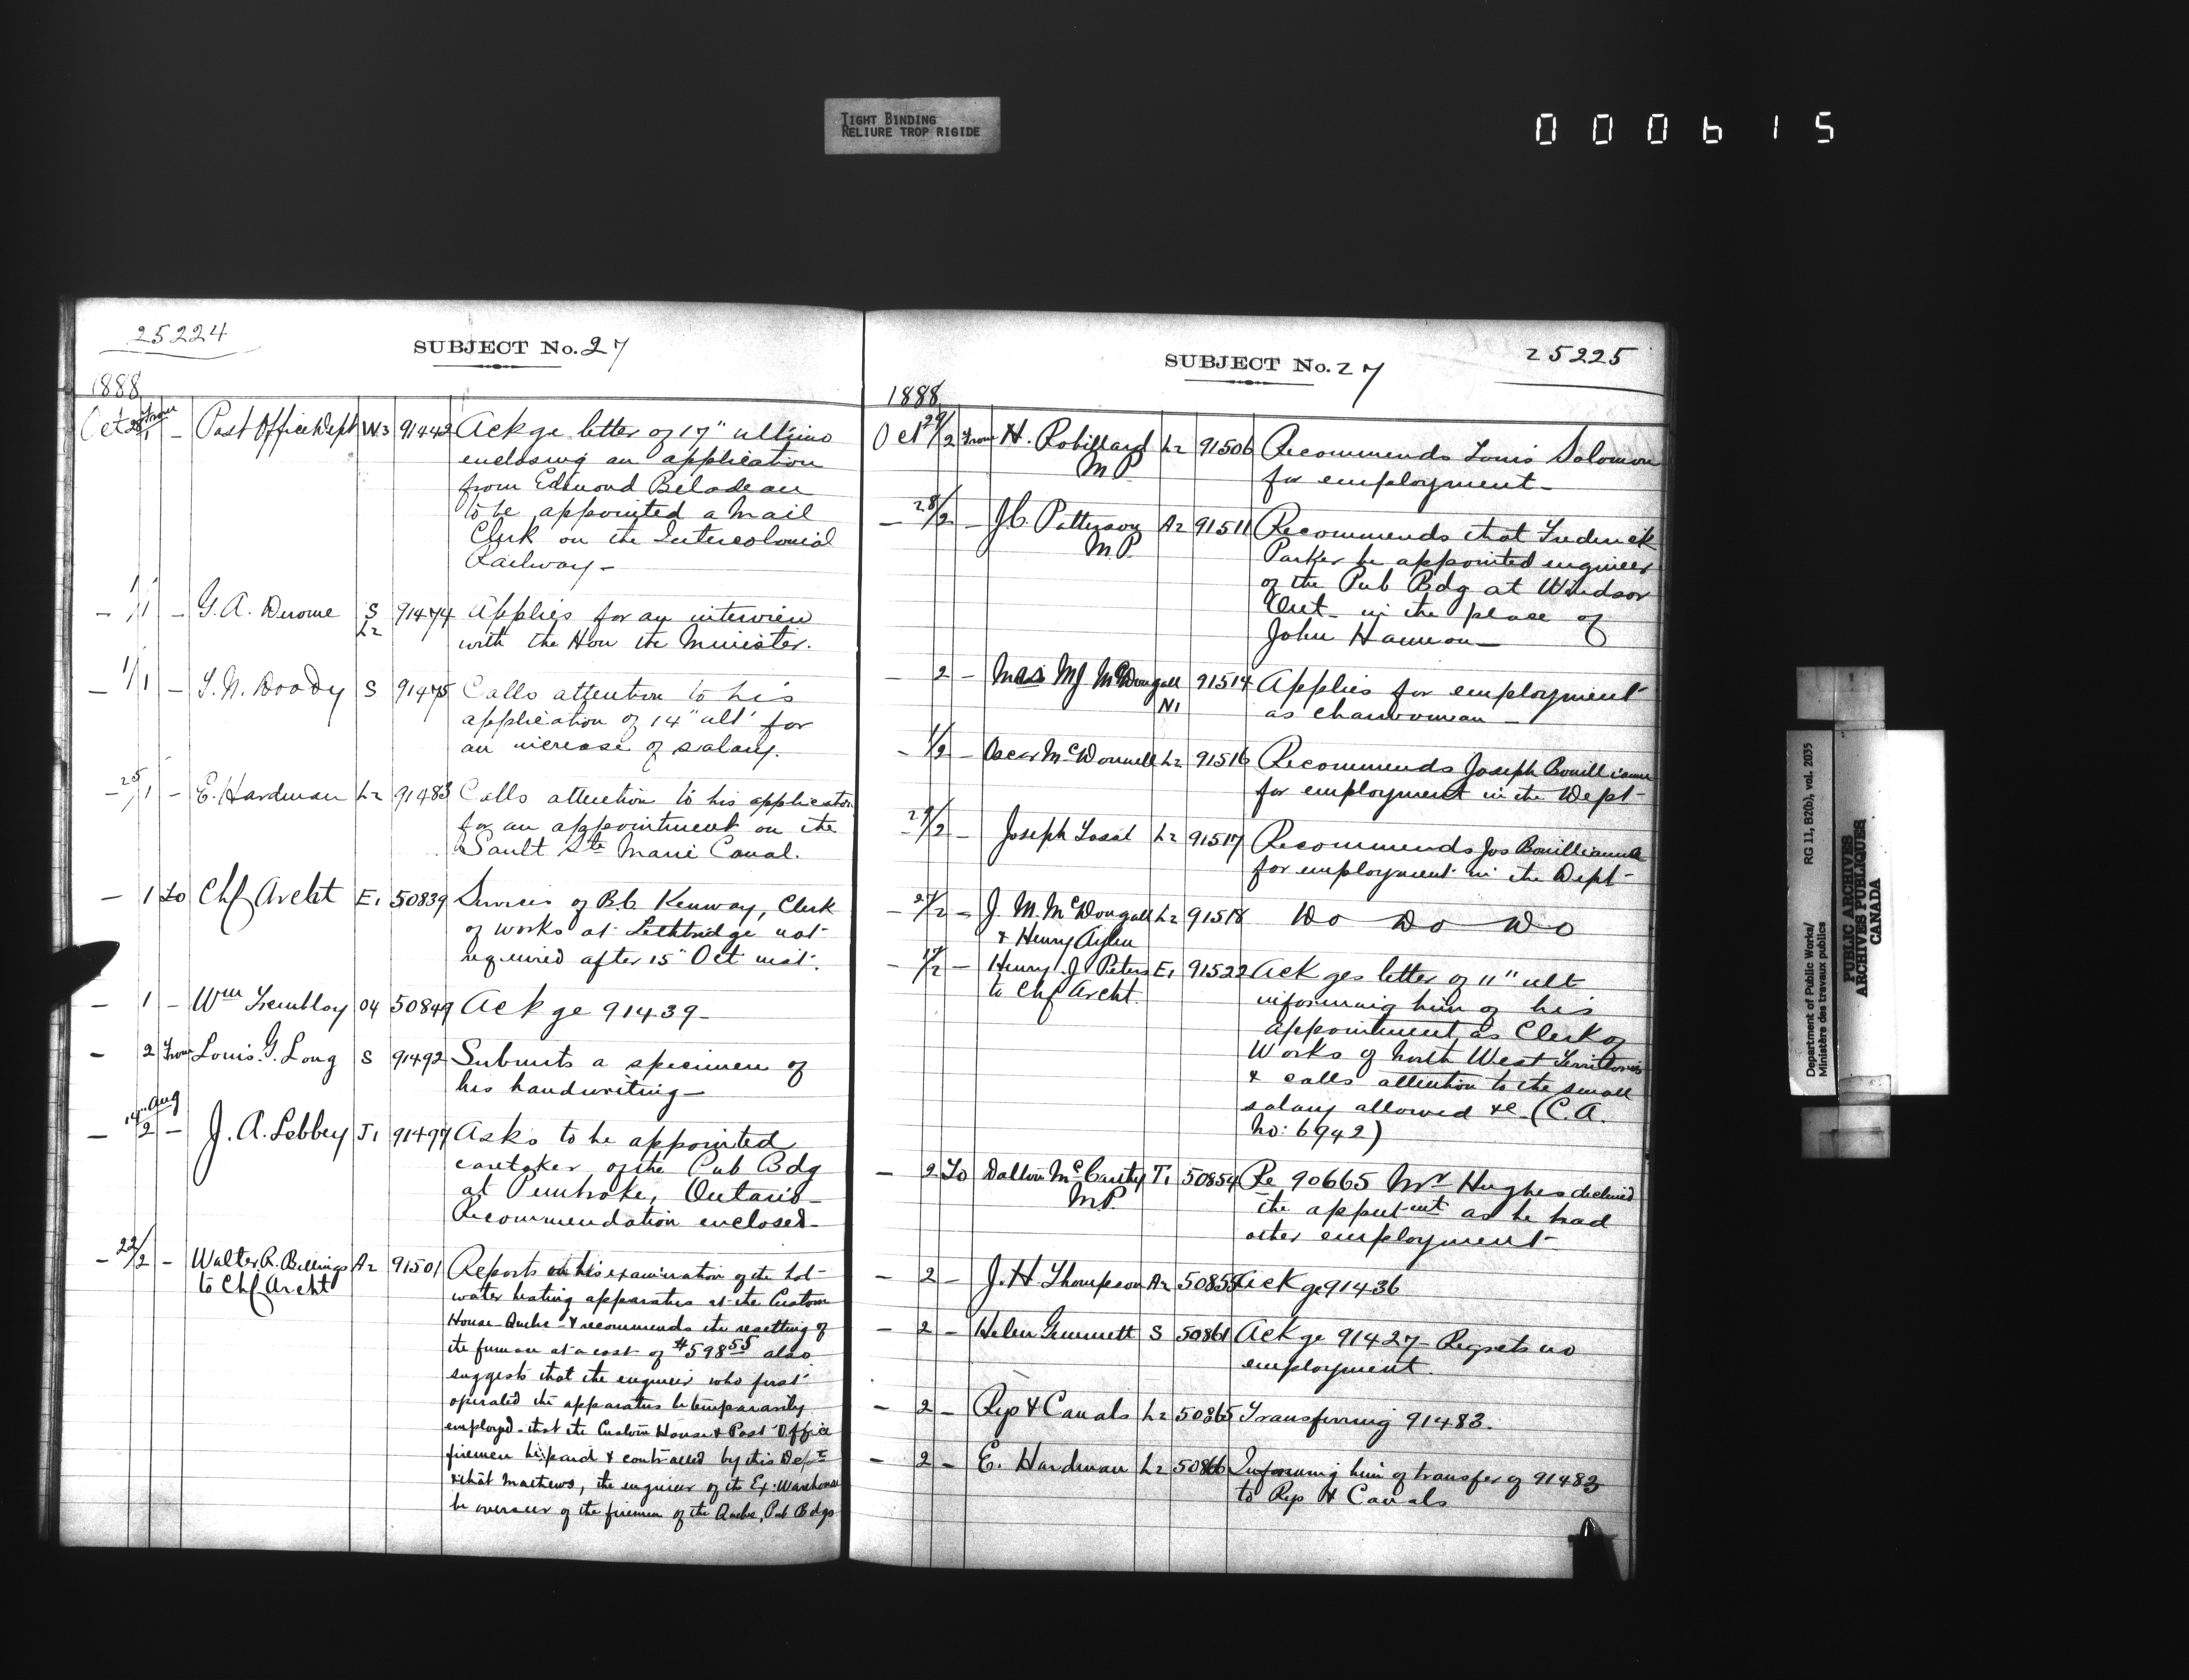 TIGHT BINDING
RELIURE TROP RIGIDE
000615
25224
SUBJECT No. 27
1888
Oct 28/1 From - Post Office Dept W3 91442 Ackge letter of 17" ultimo
enclosing an application
from Edmond Belodeau
to be appointed a mail
Clerk on the Intercolonial
Railway -
- 1/1 - G. A. Durome S L2 91474 Applies for an interview
with the Hon the Minister.
- 1/1 - S. N. Doody S 91475 Calls attention to his
application of 14" ult' for
an increase of salary.
- 25/1 - E. Hardman L2 91483 Calls attention to his application
for an appointment on the
Sault Ste Marie Canal.
- 1 To Chf Archt E1 50839 Services of B.C. Kenway, Clerk
of works at Lethbridge not
required after 15" Oct inst.
- 1 - Wm Tremblay 04 50849 Ackge 91439 -
- 2 From Louis G. Long S 91492 Submits a specimen of
his handwriting -
14 Aug
- /2 - J. A. Lebbey J1 91497 Asks to be appointed
caretaker of the Pub Bdg
at Pembroke, Ontario -
Recommendation enclosed -
- 22/2 - Walter R. Billings A2 91501 Reports on his examination of the hot
to Chf Archt water heating apparatus at the Custom
House Quebc & recommends the resetting of
the furnace at a cost of $598 55 also
suggests that the engineer who first
operated the apparatus be temporarily
employed - that the Custom House & Post Office
firemen be paid & controlled by this Dept
& that Mathews, the engineer of the Ex: Warehouse
be overseer of the firemen of the Quebc, Pub Bdgs
SUBJECT No. 27
25225
1888
Oct 29/2 From H. Robillard L2 91506 Recommends Louis Solomon
M.P. for employment -
- 28/2 - J.C. Patterson A2 91511 Recommends that Frederick
M.P. Parker be appointed engineer
of the Pub Bdg at Windsor
Ont - in the place of
John Hannon -
- 2 - Mrs MJ McDougall N1 91514 Applies for employment
as charwoman -
- 1/2 - Oscar McDonnell L2 91516 Recommends Joseph Bouillianne
for employment in the Dept -
- 29/2 - Joseph L2 91517 Recommends Jos Bouillianne
for employment in the Dept -
- 2 - J. M. McDougall L2 91518 Do Do Do
& Henry Aylen
- /2 - Henry J. Peters E1 91522 Ackges letter of 11" ult
to Chf Archt. informing him of his
appointment as Clerk of
Works of North West Territories
& calls attention to the small
salary allowed &c - (C.A.
No: 6942)
- 2 To Dalton McCarthy T1 50854 Re 90665 Mr Hughes declined
M.P. the apptment as he had
other employment -
- 2 - J. H. Thompson A2 50855 Ackge 91436
- 2 - Helen Gemmett S 50861 Ackge 91427 - Regrets no
employment.
- 2 - Rys & Canals L2 50865 Transferring 91483.
- 2 - E. Hardman L2 50866 Informing him of transfer of 91483
to Rys & Canals
Department of Public Works/
Ministère des travaux publics
RG 11, B2(b), vol. 2035
PUBLIC ARCHIVES
ARCHIVES PUBLIQUES
CANADA